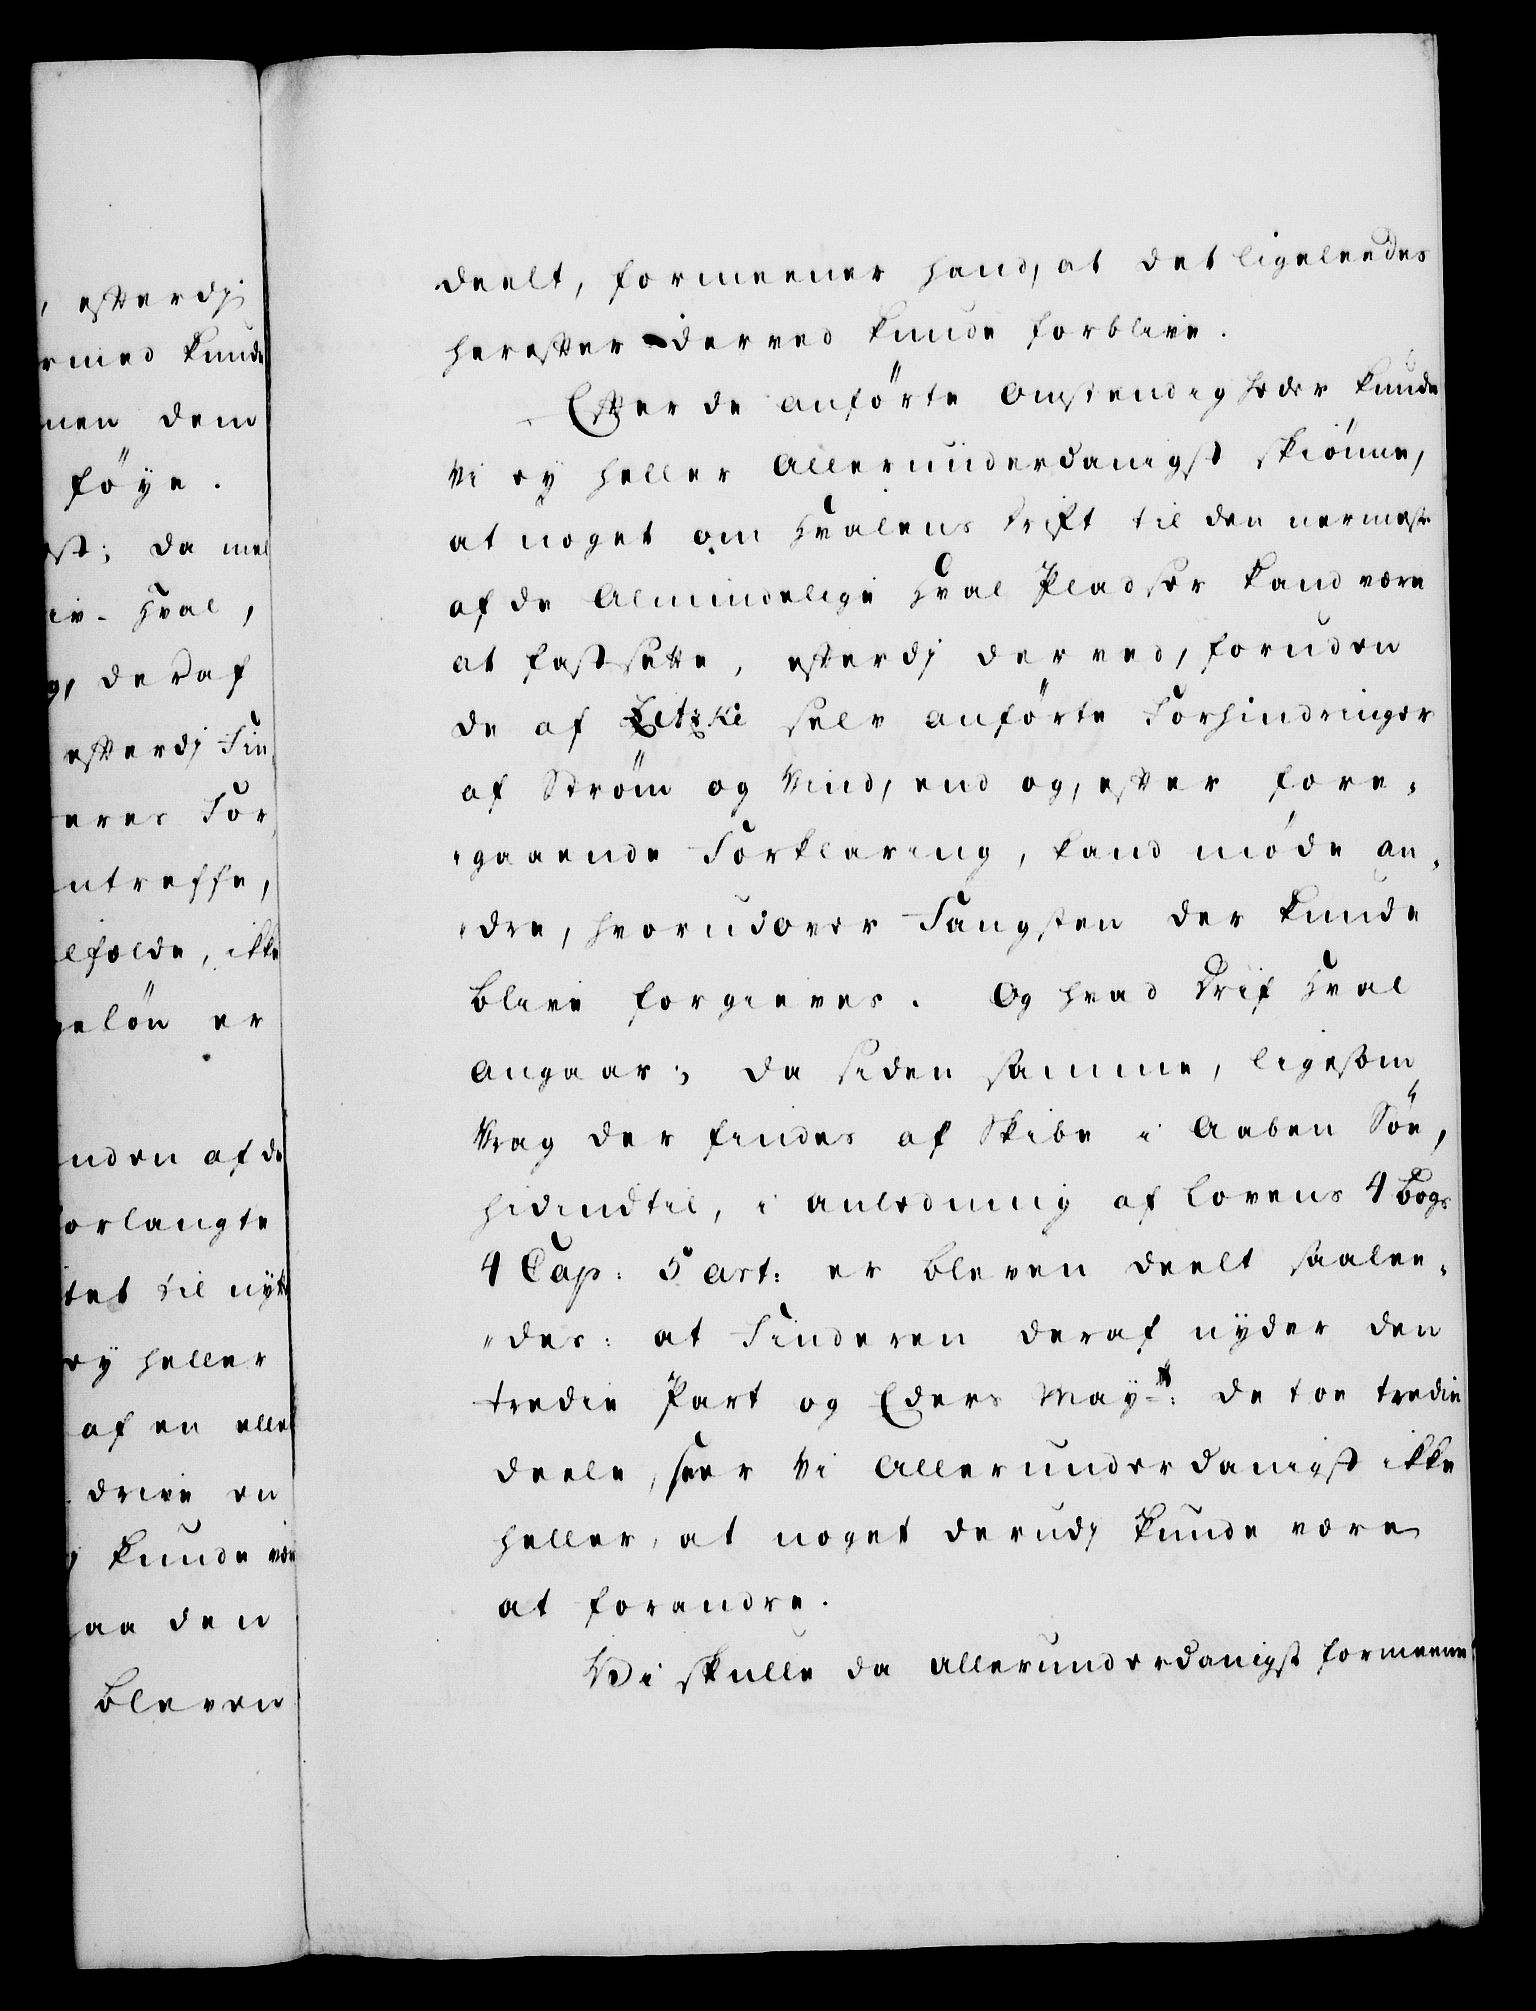 , efterdj
rmed kunde
men dem
föye.
st; da mel
iv-Hval,
g, deraf
efterdj Fin
eres For
ntreffe,
lfælde, ikke
geløn er
nden af de
orlangte
tet til nytte
ey heller
af en eller
drive en
j kunde være
aa den
bleven
deelt, formeener hand, at det ligeleedes
herefter derved kunde forblive.
Efter de anförte Omstendigheder kunde
Vi ey heller Allerunderdanigst skiönne,
at noget om Hvalens drift til den nermeste
af de Almindelige Hval Pladser kand være
at fastsette, efterdj derved, foruden
de af Zetzki selv anförte Forhindringer
af Ström og Vind, end og, efter fore-
-gaaende Forklaring, kand møde an-
-dre, hvorudover Fangsten der kunde
blive forgieves. Og hvad Drif Hval
angaar; da siden samme, ligesom
Vrag der findes af Skibe i Aaben Söe,
hidindtil, i anledning af Lovens 4 Bogs
4 Cap: 5 art: er bleven deelt saalee-
-des: at Finderen deraf nyder den
tredie Part og Eders Mayt: de toe tredie
deele, seer Vi Allerunderdanigst ikke
heller, at noget derudj kunde være
at forandre.
Vi skulle da allerunderdanigst formeene